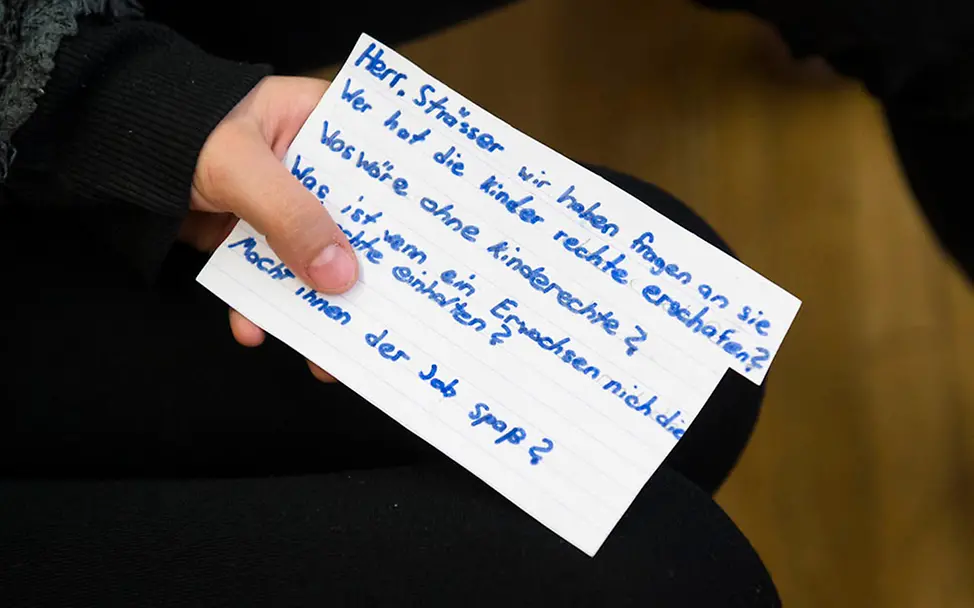 Herr. Strässer wir haben fragen an sie
Wer hat die kinder rechte erschafen?
Was wäre ohne kinderechte?
Was ist wenn ein Erwachsen nich die
einhalten?
Macht ihnen der Job Spaß?